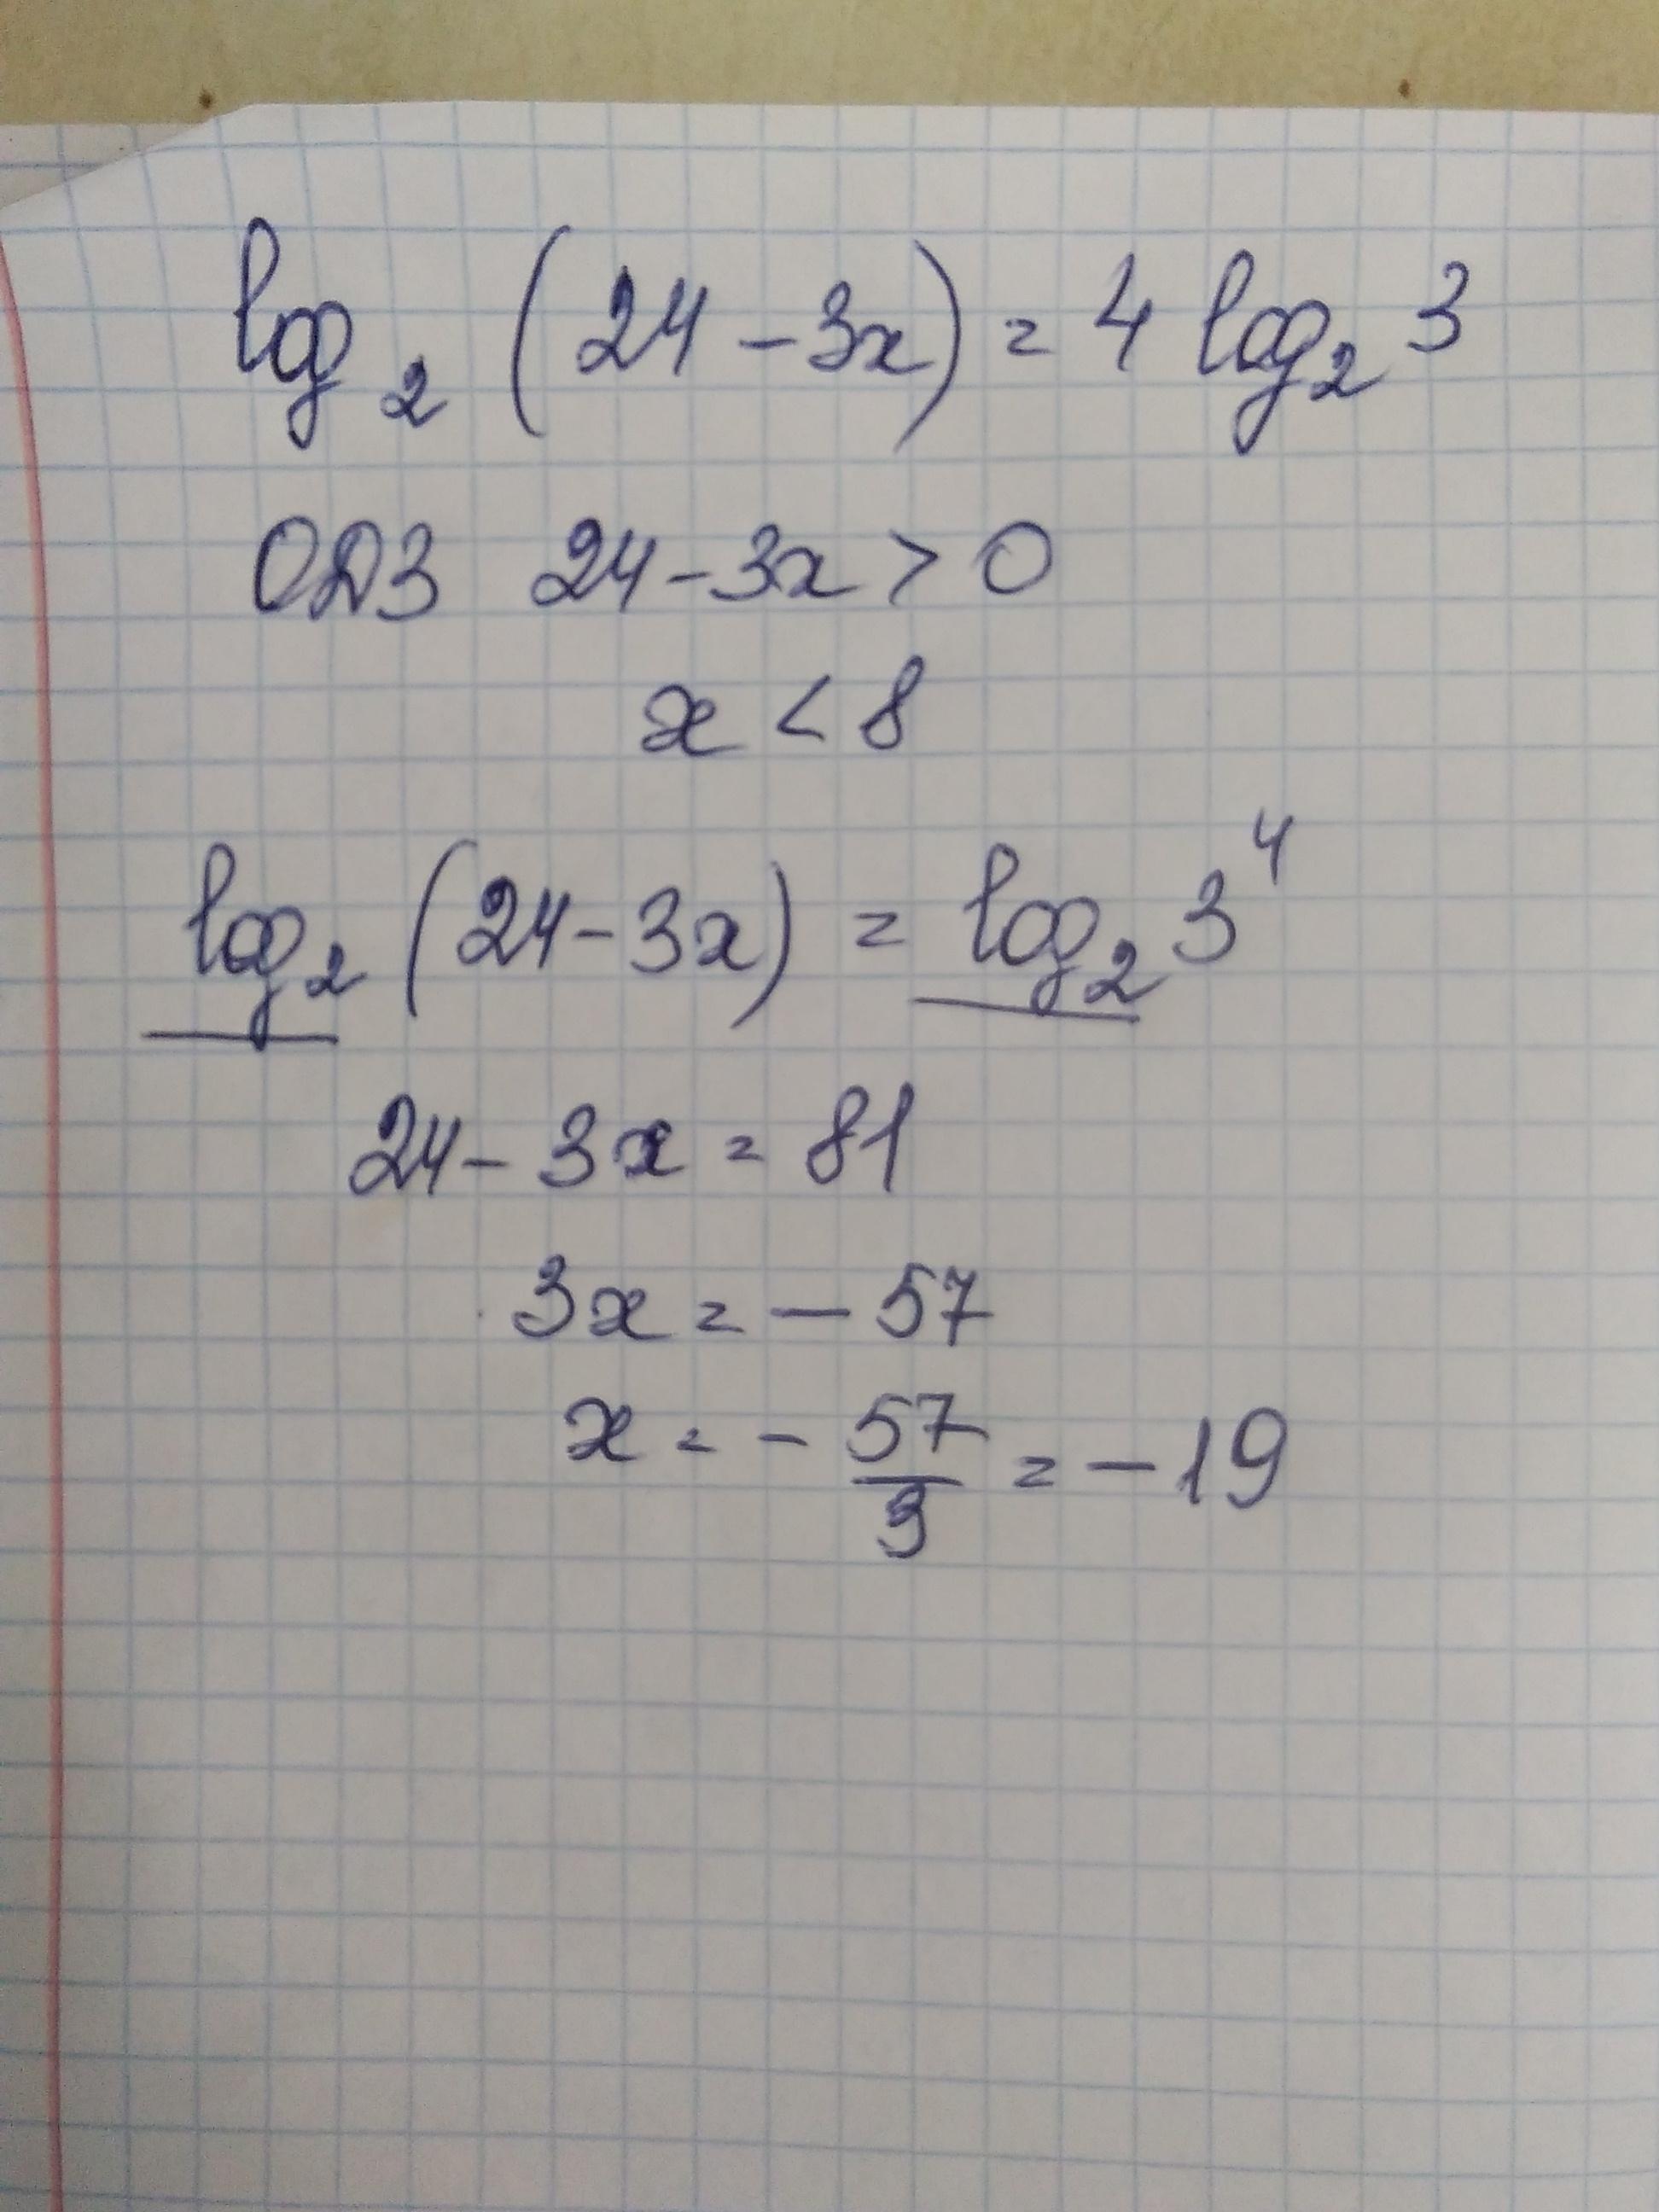 log₂ (24 - 3x) = 4 log₂ 3
ОДЗ 24 - 3x > 0
x < 8
log₂ (24 - 3x) = log₂ 3⁴
24 - 3x = 81
3x = - 57
x = - 57/3 = - 19